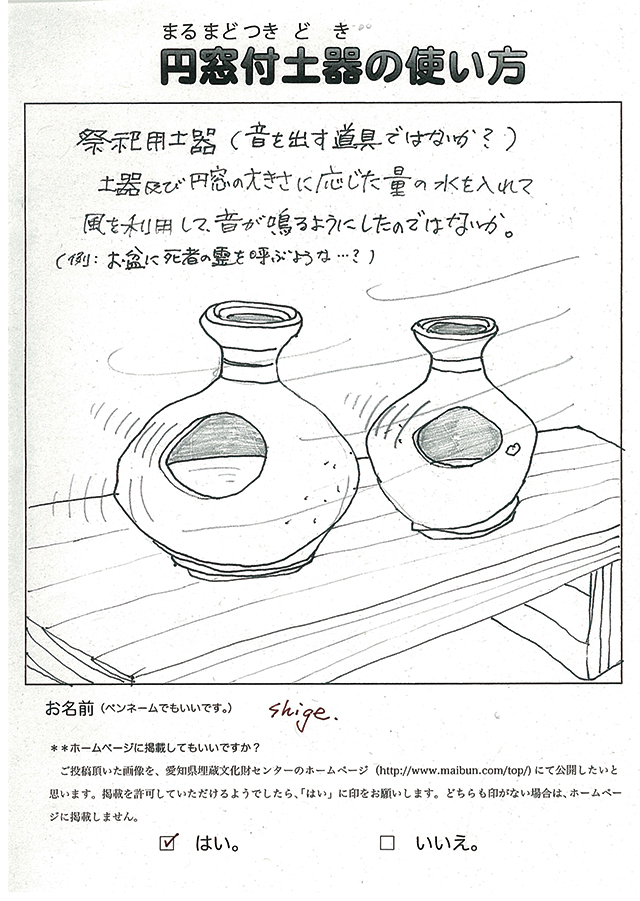 まるまどつきどき
円窓付土器の使い方
祭祀用土器（音を出す道具ではないか？）
土器及び円窓の大きさに応じた量の水を入れて
風を利用して、音が鳴るようにしたのではないか。
（例：お盆に死者の霊を呼ぶような…？）
お名前（ペンネームでもいいです。） shige.
＊＊ホームページに掲載してもいいですか？
ご投稿頂いた画像を、愛知県埋蔵文化財センターのホームページ（http://www.maibun.com/top/）にて公開したいと
思います。掲載を許可していただけるようでしたら、「はい」に印をお願いします。どちらも印がない場合は、ホームペー
ジに掲載しません。
☑ はい。 □ いいえ。